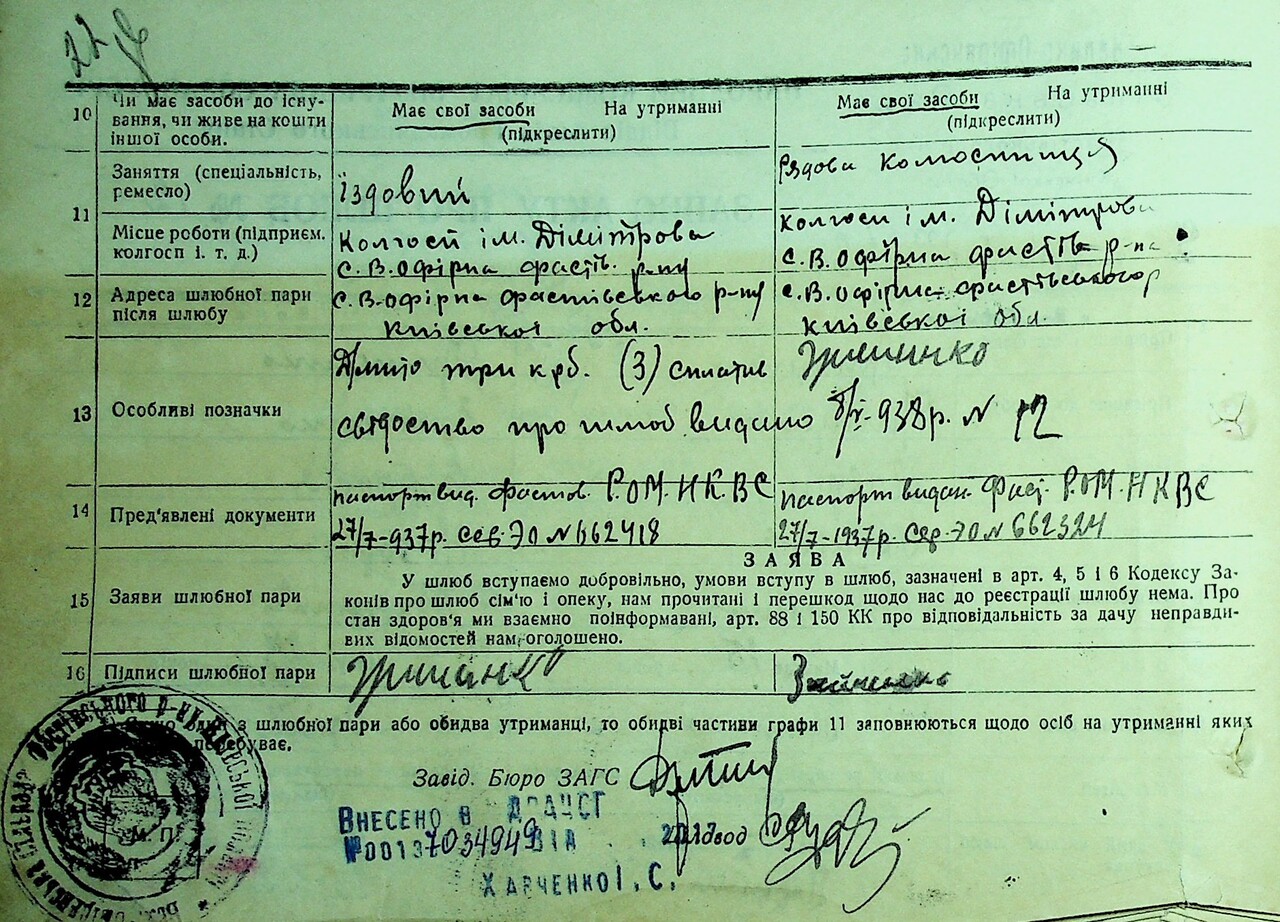 22
10 Чи має засоби до існування, чи живе на кошти іншої особи.
Має свої засоби На утриманні
(підкреслити)
Має свої засоби На утриманні
(підкреслити)
11 Заняття (спеціальність, ремесло)
їздовий
Рядова колоспниця
Місце роботи (підприєм. колгосп і. т. д.)
Колгосп ім. Дімітрова
с. В. Офірна Фастів. р-ну
Колгосп ім. Дімітрова
с. В. Офірна Фастів р-на
12 Адреса шлюбної пари після шлюбу
с. В-Офірна Фастівського р-ну
Київської обл.
с. В. Офірна Фастівського р
Київської обл.
13 Особливі позначки
три крб. (3) сплатив
свідоство про шлюб видано 8/V-938р. № 12
14 Пред'явлені документи
паспорт вид. Фастов. Р.О.М. НК.ВС
27/7-937р. Сер. ЭО № 662418
Паспорт видан. Фаст. Р.О.М. НКВС
27/7-1937р. Сер. ЭО № 662324
ЗАЯВА
15 Заяви шлюбної пари
У шлюб вступаємо добровільно, умови вступу в шлюб, зазначені в арт. 4, 5 і 6 Кодексу За-
конів про шлюб сім'ю і опеку, нам прочитані і перешкод щодо нас до реєстрації шлюбу нема. Про
стан здоров'я ми взаємно поінформавані, арт. 88 і 150 КК про відповідальність за дачу неправди-
вих відомостей нам оголошено.
16 Підписи шлюбної пари
з шлюбної пари або обидва утриманці, то обидві частини графи 11 заповнюються щодо осіб на утриманні яких
перебуває.
Завід. Бюро ЗАГС
М. П.
Внесено в ДРАЦСГ
№00137034949 від
Харченко І. С.